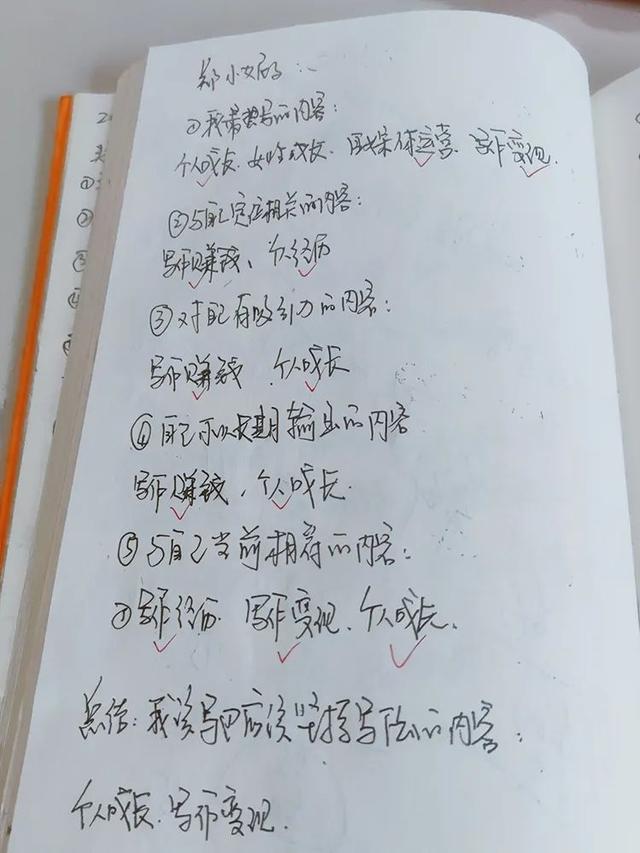 郑小女的:
①我常想写的内容:
个人成长、女性成长、自媒体运营、写作变现.
②与自己定位相关的内容:
写作赚钱、个人经历
③对自己有吸引力的内容:
写作赚钱、个人成长
④自己可以长期输出的内容
写作赚钱、个人成长.
⑤与自己当前相符的内容:
①写作经历、写作变现、个人成长.
总结:我该写也应该坚持写下去的内容:
个人成长、写作变现.